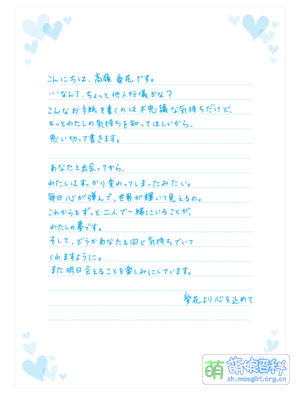 こんにちは、高嶺 葵花です。
…なんて、ちょっと他人行儀かな？
こんなお手紙を書くのは不思議な気持ちだけど、
もっとわたしの気持ちを知ってほしいから、
思い切って書きます。
あなたと出会ってから、
わたしはすっかり変わってしまったみたい。
毎日心が弾んで、世界が輝いて見えるの。
これからもずっと二人で一緒にいることが、
わたしの夢です。
そして、どうかあなたも同じ気持ちでいて
くれますように。
また明日会えることを楽しみにしています。
葵花より心を込めて
萌 萌娘百科
zh.moegirl.org.cn